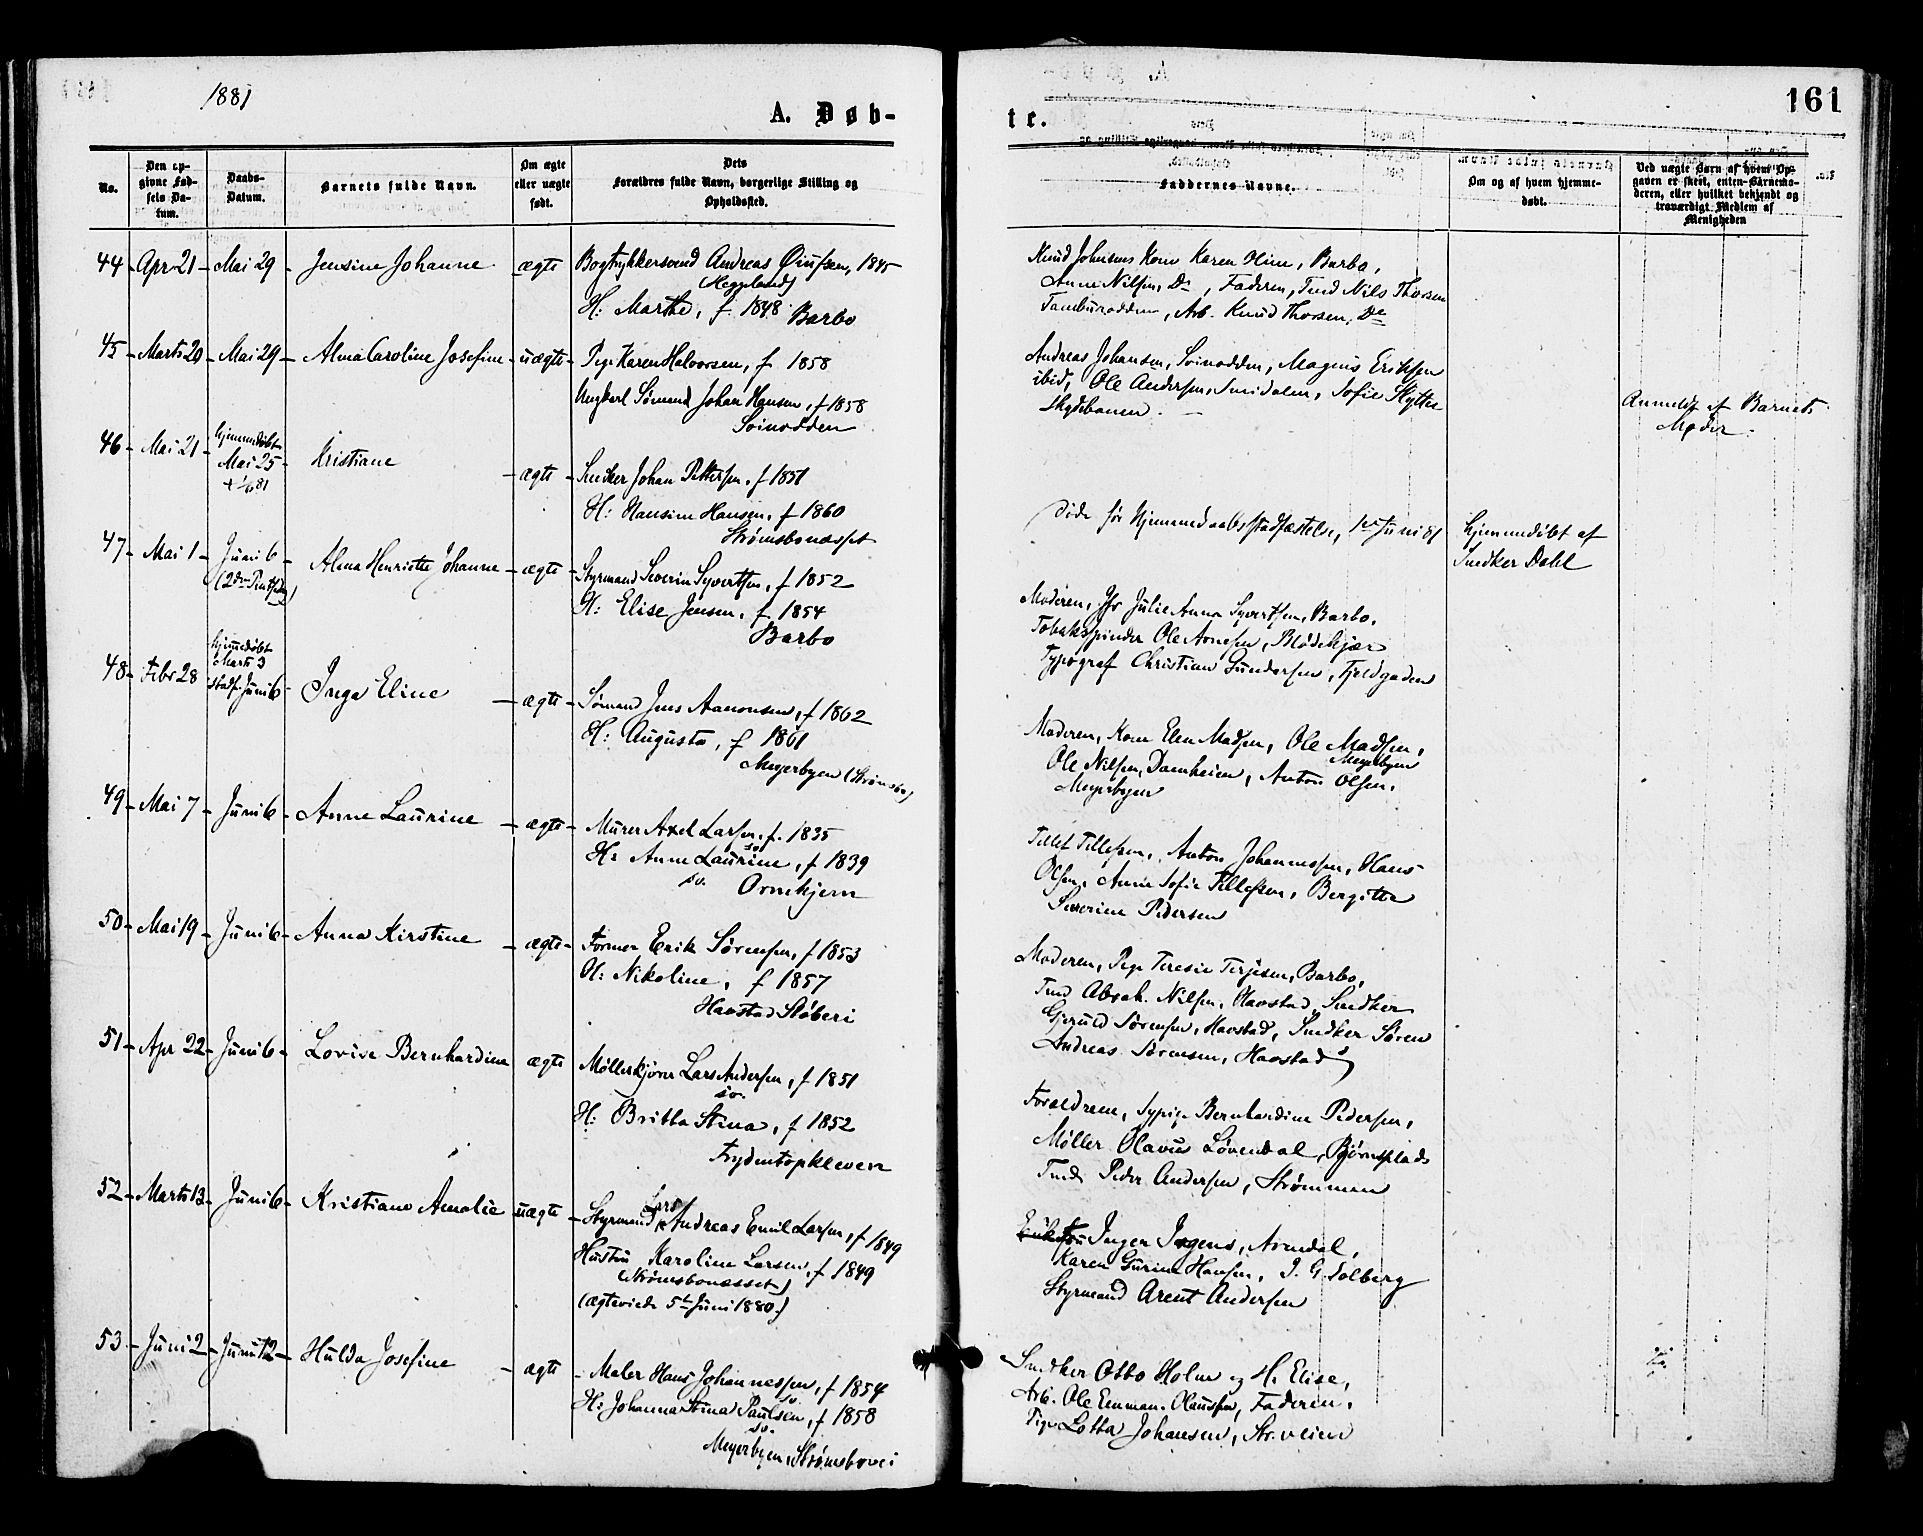 1881
A. Døb-
No.
Den op-
givne Fød-
sels Da-
tum.
Daabs-
Datum.
Barnets fulde Navn.
Om ægte
eller uægte
født.
Dets
Forældres fulde Navn, borgerlige Stilling og
Opholdssted.
44 - Apr 21 - Mai 29 - Jensine Johanne ægte Bogtrykkersvend Andreas 1845
H: Marthe, f. 1848 Barbo
45 - Marts 20 - Mai 29 - Alma Caroline Josefine - uægte - Pige Karen Halvorsen, f 1858
Ungkarl Sømand Johan Hansen, f 1858
Svinodden
46 - Mai 21 - hjemmedøbt
Mai 25 - Kristiane - ægte - Snedker Johan Pettersen, f 1851
H: Hansine Hansen, f 1860
Strømsbonæsset
47 - Mai 1 - Juni 6 - Alma Henriette Johanne - ægte - Styrmand Severin Syvertsen, f 1852
H: Elise Jensen, f. 1854
Barbo
48 - Febr 28 hjemmedøbt
Marts 3
stadf. Juni 6 - Inga Eline - ægte - Sømand Jens Aanonsen, f 1862
H: Augusta, f 1861
Meyerbyen (Strømsbo)
49 - Mai 7 - Juni 6 - Anne Laurine - ægte - Murer Axel Larsen, f. 1835
sv.
H: Anne Laurine, f 1839
sv. Ornekjern
50 - Mai 19 - Juni 6 - Anna Kirstine - ægte - Former Erik Sørensen, f 1853
H: Nikoline, f 1857
Havstad Støberi
51 - Apr 22 - Juni 6 - Lovise Bernhardine ægte Møllerkjører Lars Andersen, f 1851
sv.
H: Britta Stina, f 1852
Frydentopkleven
52 - Marts 13 - Juni 6 - Kristiane Amalie uægte - Styrmand Lars Andreas Emil Larsen, f 1849
Hustru Karoline Larsen, f 1849
(Strømsbonæsset)
(ægteviede 5te Juni 1880.)
53 - Juni 2 - Juni 12 - Hulda Josefine - ægte - Maler Hans Johannessen, f 1854
sv.
H: Johanna Stina Paulsen, f 1858
sv.
Meyerbyen, Strømsbovei
te.
161
Faddernes Navne.
Om og af hvem hjemme-
døbt.
Ved uægte Børn af hvem Op-
gaven er skeet, enten Barnemo-
deren, eller hvilket bekjendt og
troværdigt Medlem af
Menigheden
Knud Johnsens Kone Karen Oline, Barbo,
Anne Nilsen, Do, Faderen, Tmd Nils Thorsen
Tamburodden, Arb. Knud Thorsen, Do
Andreas Johansen, Svinodden, Magnus Eriksen
ibid, Ole Andersen, Sofie Skytter
Skydebanen. -
Anmeldt af Barnets
Moder.
Døde før Hjemmedaabs stadfæstelse, 1ste Juni 81
Hjemmedøbt af
Snedker Dahl
Moderen, Jfr Julie Anna Syvertsen, Barbo,
Tobakspinder Ole Arnesen, Blødekjær
Typograf Christian Gundersen, Fjeldgaden
Moderen, Kone Elen Madsen, Ole Madsen,
Meyerbyen
Ole Nilsen, Damheien, Anton Olsen,
Meyerbyen
Tellef Tellefsen, Anton Johannessen, Hans
Olsen, Anne Sofie Tellefsen, Bergitte
Severine Pedersen
Moderen, Pige Teresie Terjesen, Barbo,
Tmd Abrah. Nilsen, Havstad, Snedker
Gjeruld Sørensen, Havstad, Snedker Søren
Andreas Sørensen, Havstad
Forældrene, Sypige Bernhardine Pedersen,
Møller Olavus Løvendal, Bjørnsplads
Tmd Peder Andersen, Strømmen
Fru Inger Jrgens, Arendal,
Karen Gurine Hansen, J. G. Solberg
Styrmand Arent Andersen
Snedker Otto Holm og H. Elise,
Arb. Ole Emman. Olaussen, Faderen,
Pige Lotta Johansen, Str.veien